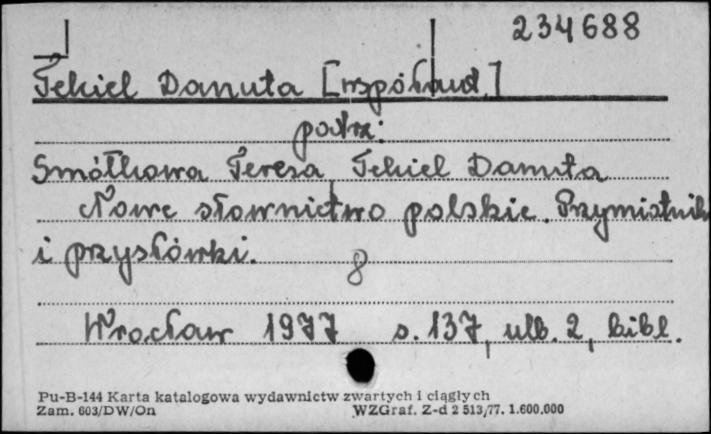 234688
Tekiel Danuta [współaut.]
patrz:
Smółkowa Teresa, Tekiel Danuta
Nowe słownictwo polskie. Przymiotniki
i przysłówki.
8
Wrocław 1977 s. 137, ulb. 2, bibl.
Pu-B-144 Karta katalogowa wydawnictw zwartych i ciągłych
Zam. 603/DW/On WZGraf. Z-d 2 513/77. 1.600.000